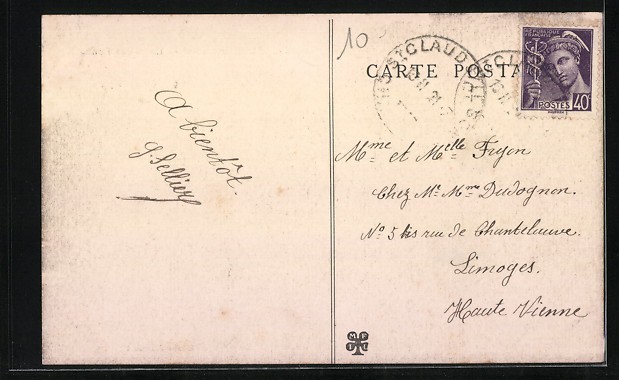 10
CARTE POSTA
RÉPUBLIQUE FRANÇAISE
POSTES 40c
ST CLAUD
A bientôt.
Mme et Melle Fryon
Chez Mr Mme Dudognon.
No 5 bis rue de Chantelauve.
Limoges.
Haute Vienne